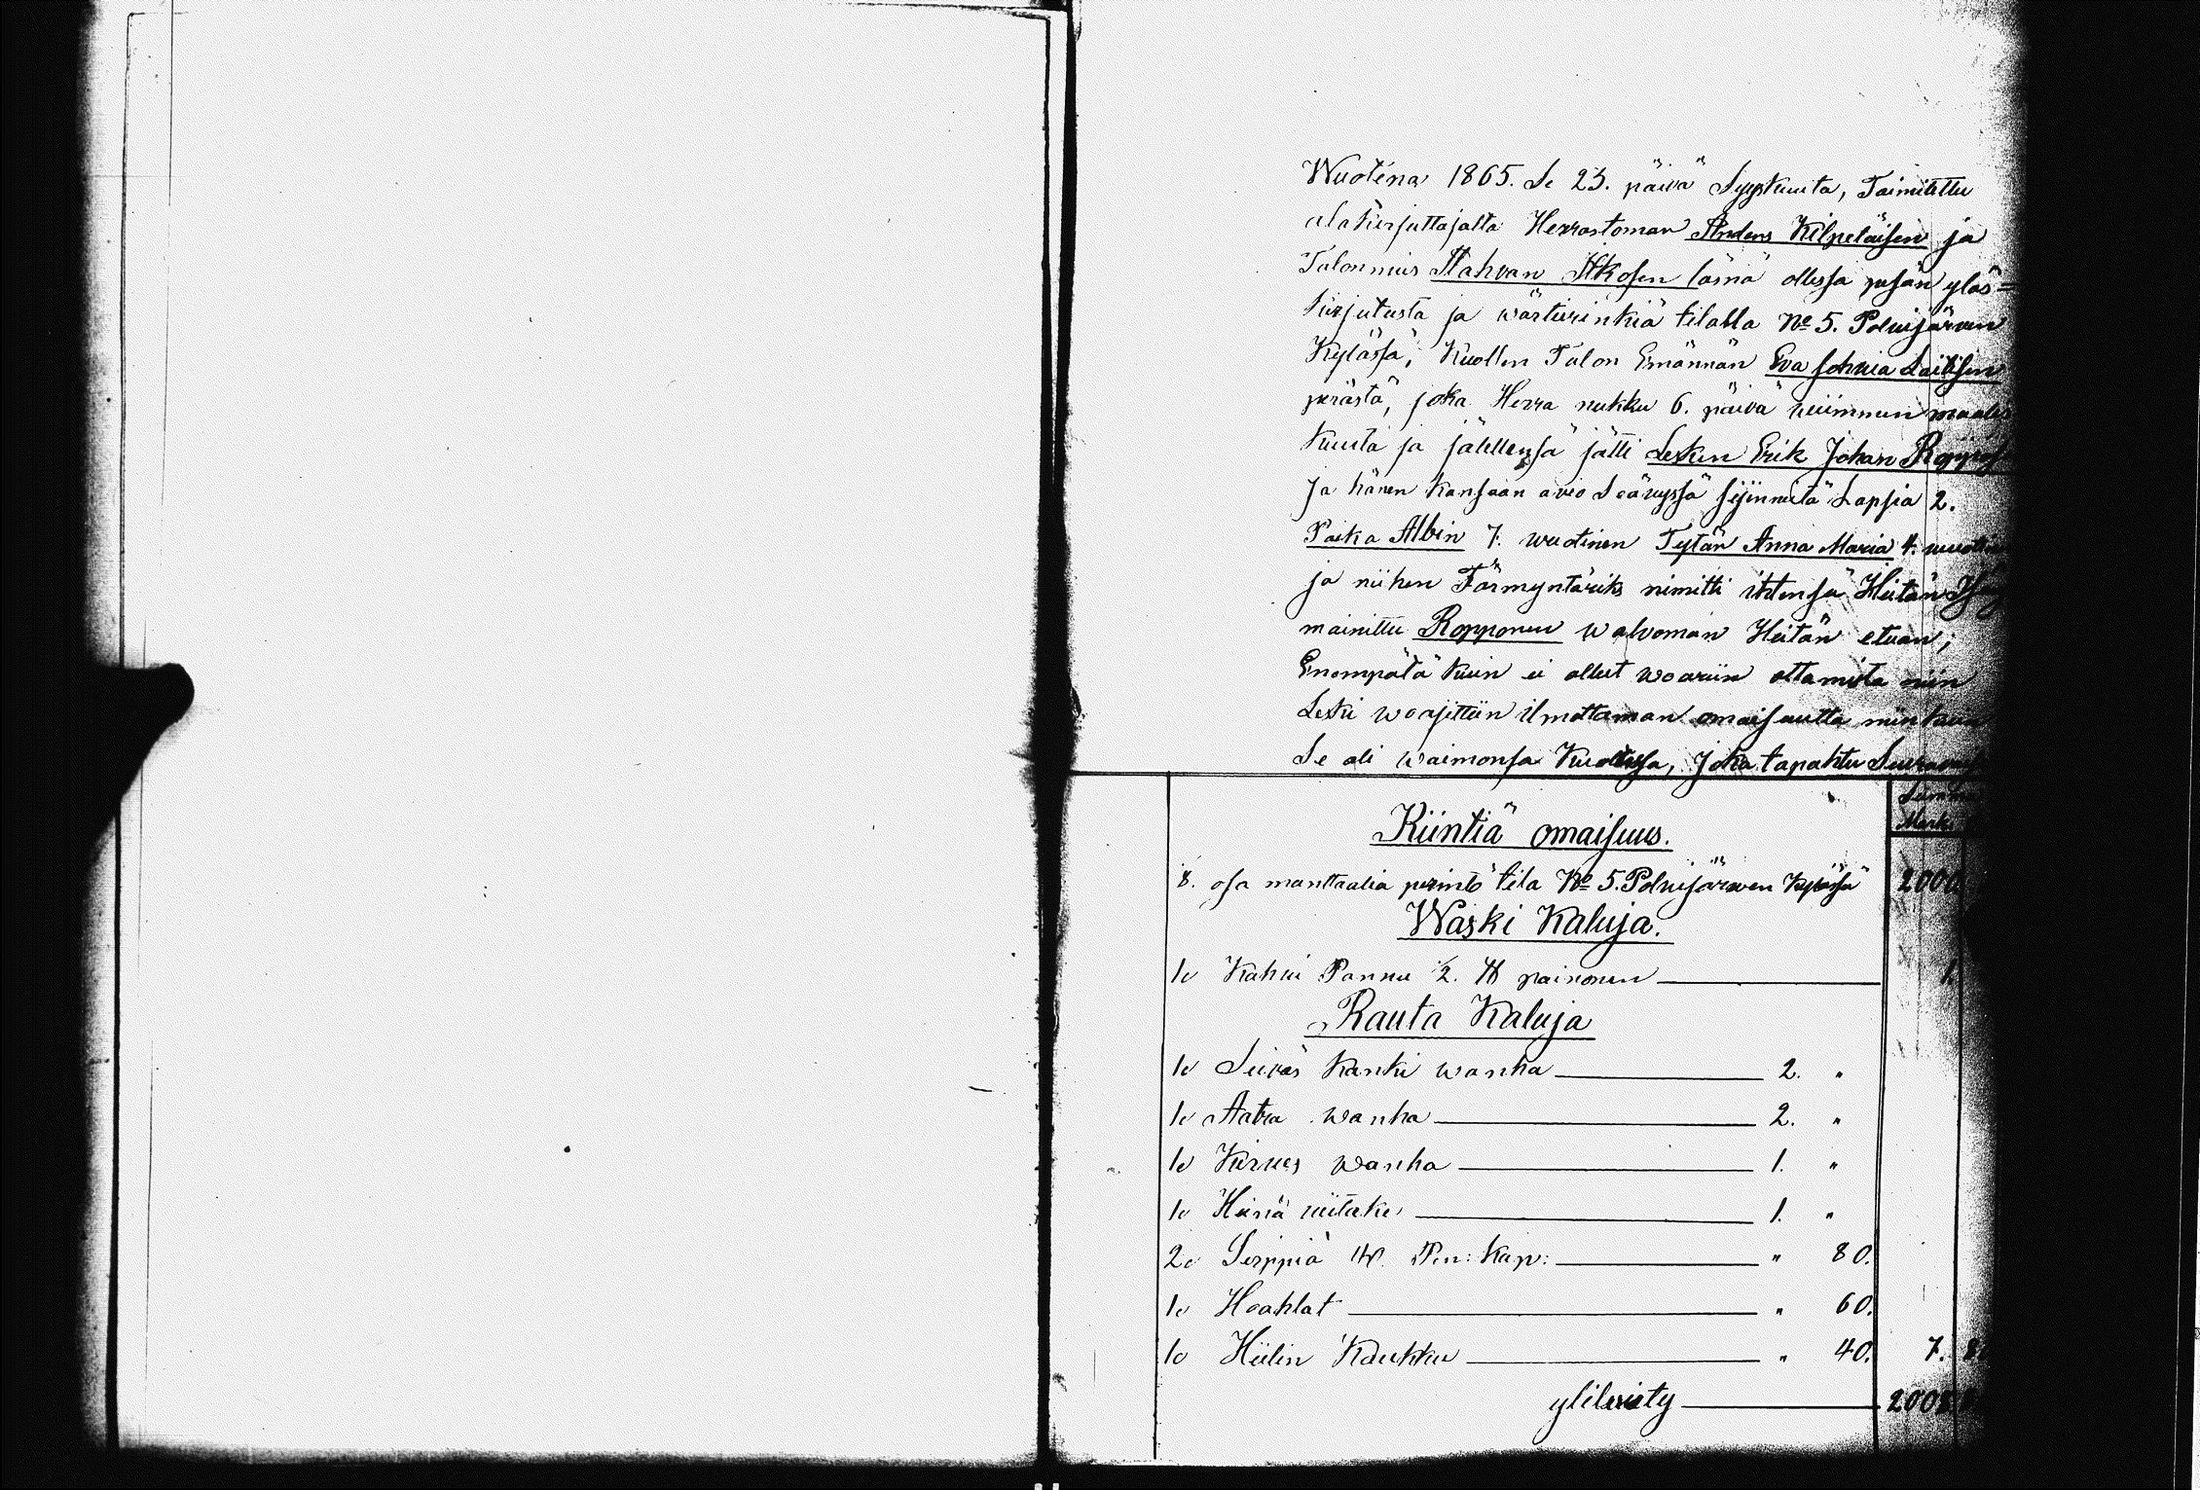 Wuotena 1865. Se 23. päivä Syyskuuta, Toimitettu
alakirjuttajalta Herrastoman Anders Kilpeläisen ja
Talonmies Stahvan Itkosen läsnä ollessa pesän ylös=
kirjutusta ja wärteerinkiä tilalla No 5. Polvijärven
Kylässä, Kuollen Talon Emännän Eva Sohvia Laitisen
perästä, joka Herra nukku 6. päivä viimmen maalis
kuuta ja jälellensä jätti Lesken Erik Johan Roppos
ja hänen kansaan avio Säävyssä sijinneitä Lapsia 2.
Poika Albin 7. wuotinen Tytär Anna Maria 4. wuotin
ja niihen Förmyntäriks nimitti ihtensä Heitän
mainittu Ropponen walvoman Heitän etuan;
Enempätä kuin ei ollut waariin ottamista niin
Leski waajittiin ilmottaman omaisuutta niin kuin
Se oli waimonsa Kuollessa, Joka tapahtu Seuraava
Kiintiä omaisuus.
Mark
8. osa manttaalia perintö tila No 5. Polvijärven Kylässä 2000
Waski Kaluja.
1 Kahvi Pannu 1/2. ℔ painonen 1.
Rauta Kaluja
1 Seiväs Kanki wanha 2. "
1 Aatra wanha 2. "
1 Kirves wanha 1. "
1 Heinä viitake 1. "
2 Serppiä W. Pen: Kap: " 80.
1 Haahlat " 60.
1 Hiilin Koukku " 40. 7. 80
ylileviety 2008